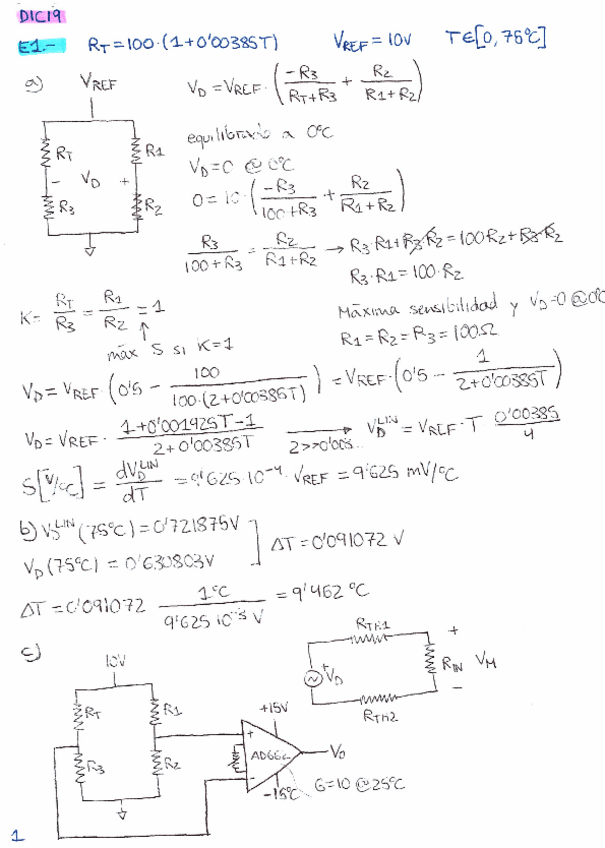 DIC19
E1.- R_T=100·(1+0'00385T) V_REF=10V T∈[0,75ºC]
a) V_REF V_D=V_REF·(-R3/(R_T+R3) + R2/(R1+R2))
equilibrado a 0ºC
R_T R1
V_D=0 @ 0ºC
- V_D +
0=10·(-R3/(100+R3) + R2/(R1+R2))
R3 R2
R3/(100+R3) = R2/(R1+R2) → R3·R1+R3·R2=100R2+R3·R2
R3·R1=100·R2
K= R_T/R3 = R1/R2 =1
máx S si K=1
Máxima sensibilidad y V_D=0@0ºC
R1=R2=R3=100Ω
V_D=V_REF(0'5 - 100/(100·(2+0'00385T)))=V_REF·(0'5 - 1/(2+0'00385T))
V_D=V_REF· (1+0'001925T-1)/(2+0'00385T) → 2>>0'003... V_D^LIN=V_REF·T 0'00385/4
S[V/ºC] = dV_D^LIN/dT = 9'625·10^-4·V_REF=9'625 mV/ºC
b) V_D^LIN(75ºC)=0'721875V
V_D(75ºC)=0'630803V
ΔT=0'091072 V
ΔT=0'091072 1ºC/(9'625 10^-3 V) =9'462 ºC
c) 10V
R_TH1
+
V_D
+
R_IN V_M
-
R_TH2
R_T R1
+15V
R3 R2
+
AD662
-
V_O
-15ºC
G=10@25ºC
1